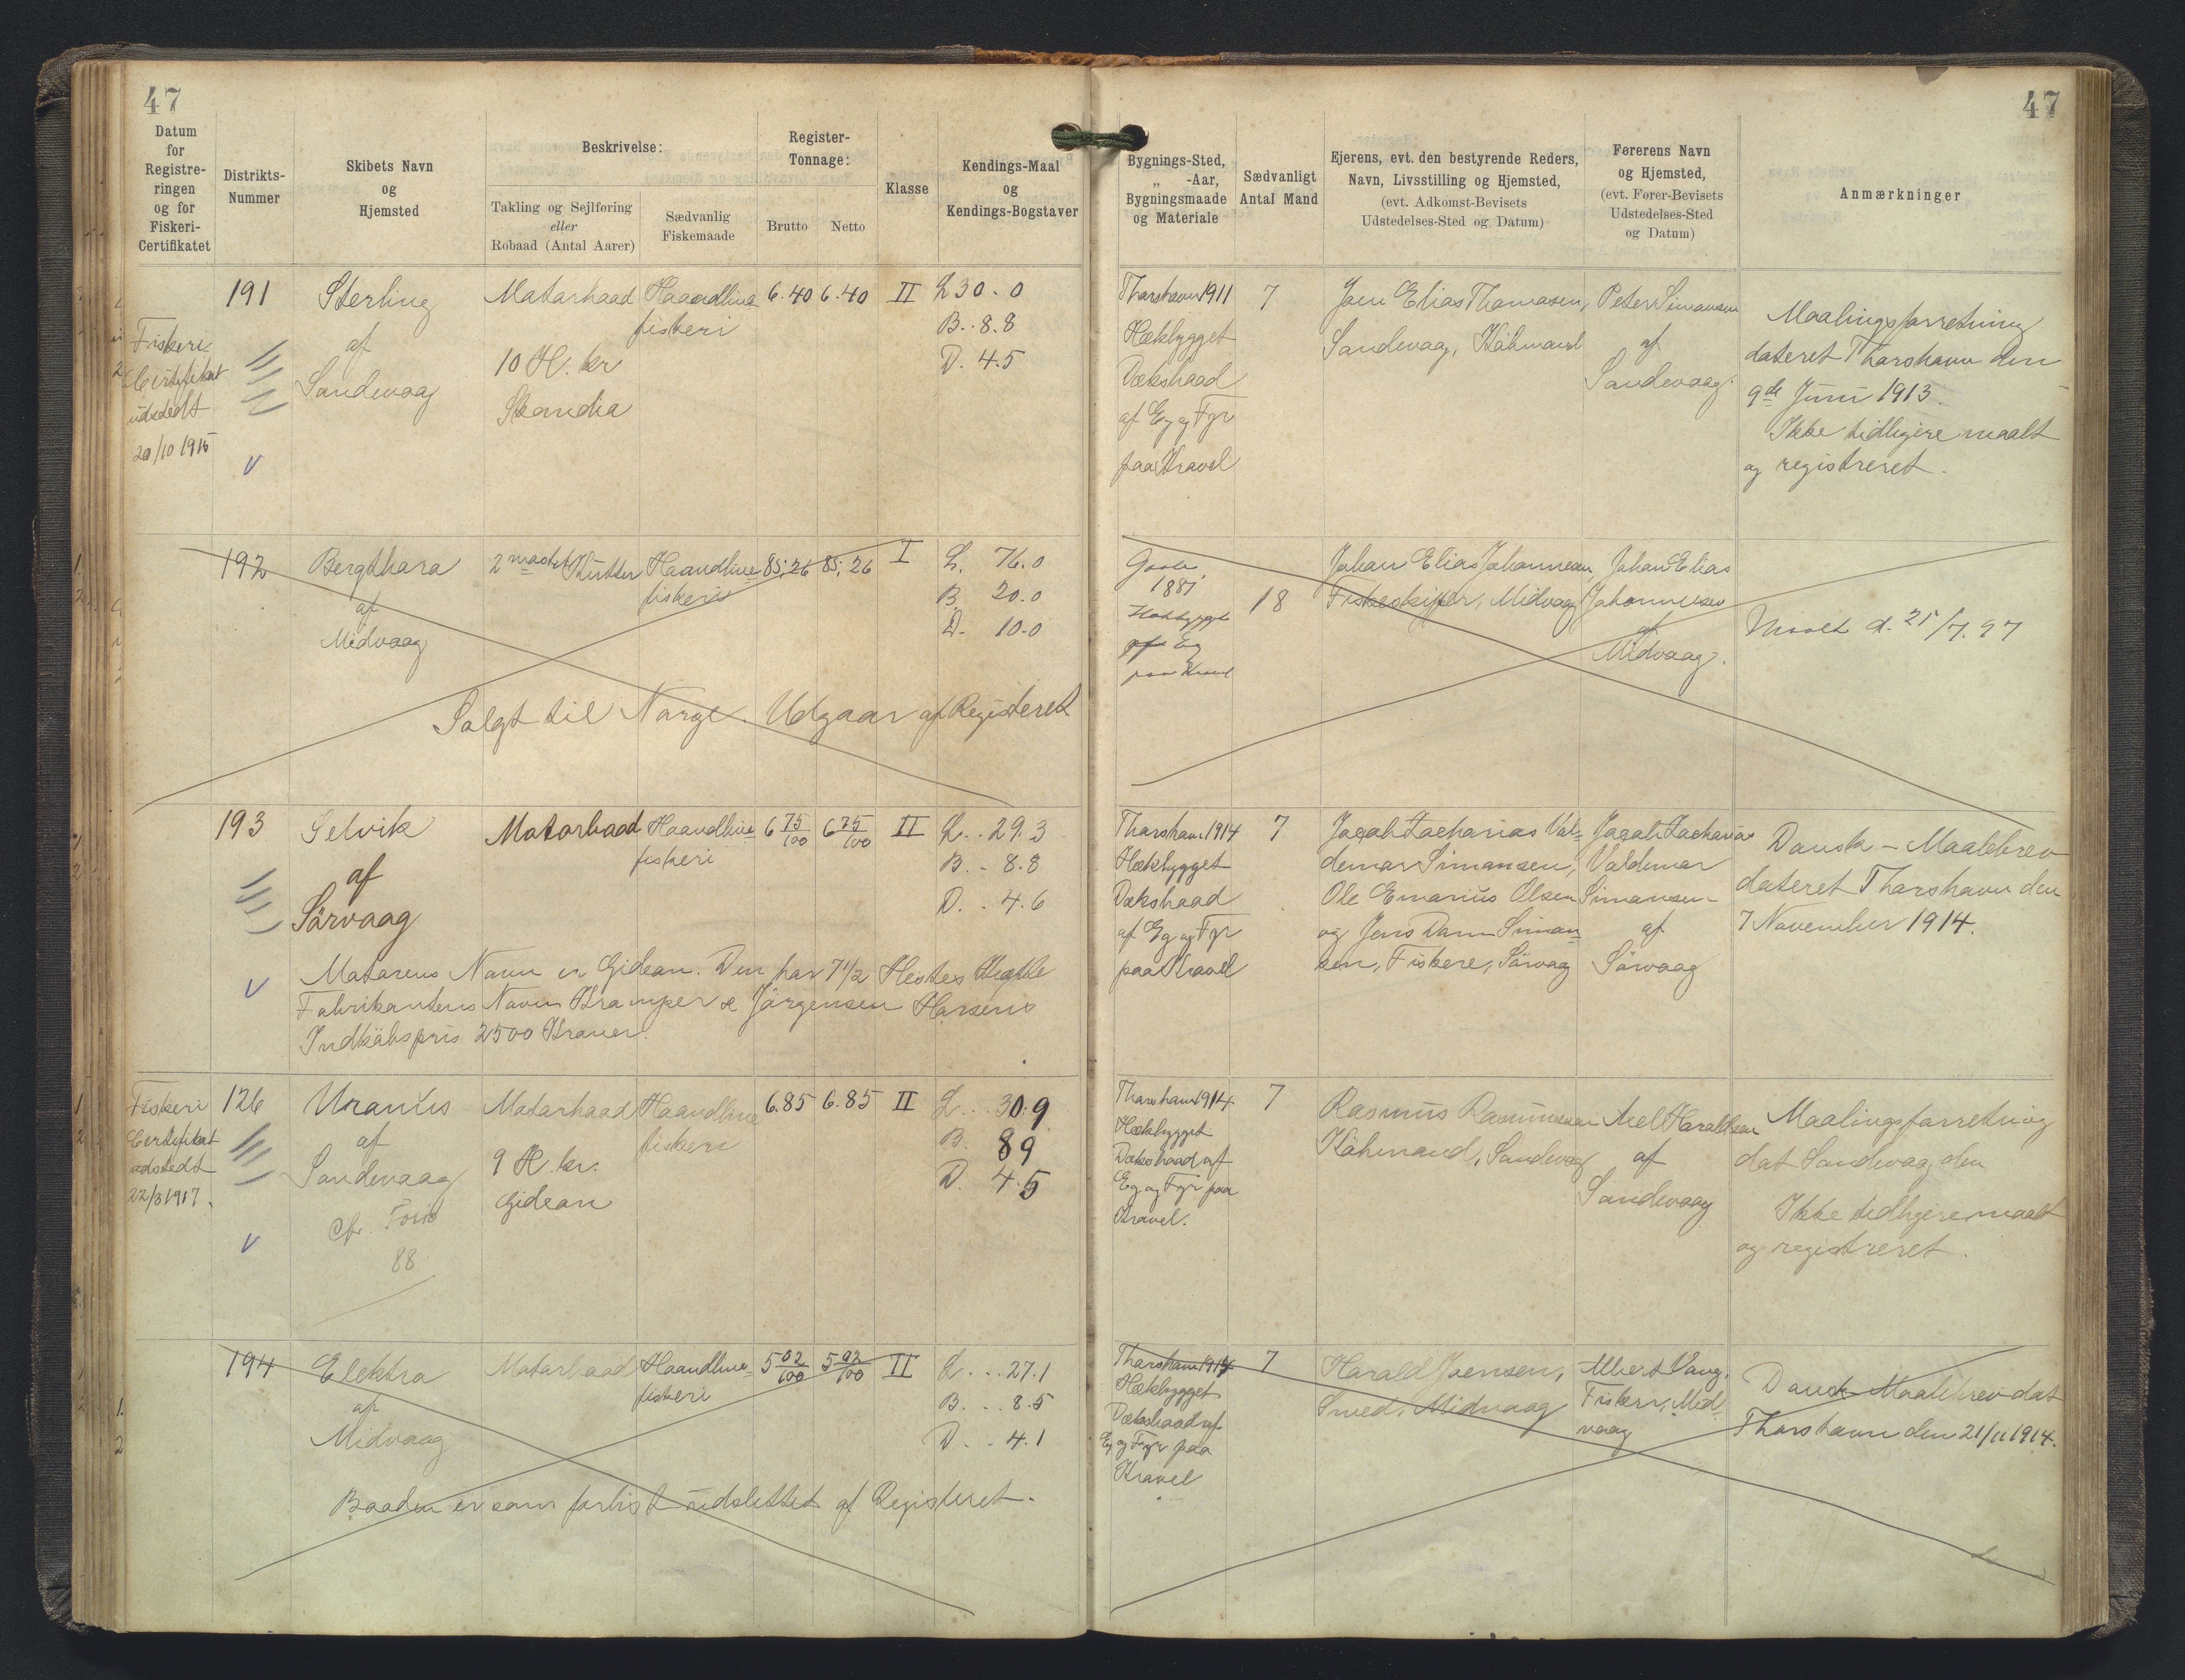 47
47
Datum
for
Registre-
ringen
og for
Fiskeri-
Certifikatet
Distrikts-
Nummer
Skibets Navn
og
Hjemsted
Beskrivelse:
Takling og Sejlføring
eller
Robaad (Antal Aarer)
Sædvanlig
Fiskemaade
Register-
Tonnage:
Brutto
Netto
Klasse
Kendings-Maal
og
Kendings-Bogstaver
Bygnings-Sted,
„ -Aar,
Bygningsmaade
og Materiale
Sædvanligt
Antal Mand
Ejerens, evt. den bestyrende Reders,
Navn, Livsstilling og Hjemsted,
(evt. Adkomst-Bevisets
Udstedelses-Sted og Datum)
Førerens Navn
og Hjemsted,
(evt. Fører-Bevisets
Udstedelses-Sted
og Datum)
Anmærkninger
Fiskeri
Certifikat
udstedt
20/10 1915
191
Sterling
af
Sandevaag
Motorbaad
10 H. kr
Skandia
Haandline
fiskeri
6.40
6.40
II
L 30.0
B. 8.8
D. 4.5
Thorshavn 1911
Hækbygget
Dæksbaad
af Eg og Fyr
paa Kravel
7
Joen Elias Thomasen,
Sandevaag, Købmand
Peter Simonsen
af
Sandevaag.
Maalingsforretning
dateret Thorshavn den
9de Juni 1913.
Ikke tidligere maalt
og registreret.
192
Bergthora
af
Midvaag
2 mastet Kutter
Haandline
fiskeri
85,26
85,26
I
L. 76.0
B. 20.0
D. 10.0
Solgt til Norge. Udgaar af Registeret
Goole
1881
Hækbygget
af Eg
paa Kravel
18
Johan Elias Johannesen,
Fiskeskipper, Midvaag
Johan Elias
Johannesen
af
Midvaag.
Maalt d. 25/7. 97
193
Selvik
af
Sörvaag
Motorbaad
Haandline
fiskeri
6 75/100
6 75/100
II
L. . 29.3
B. - 8.8
D. . 4.6
Motorens Navn er Gidean. Den har 7 1/2 Hestes Kræfte
Fabrikantens Navn Kramper & Jörgensen Horsens
Indkøbspris 2500 Kroner.
Thorshavn 1914
Hækbygget
Dæksbaad
af Eg og Fyr
paa Kravel
7
Jagab Zacharias Val-
demar Simonsen,
Ole Emarius Olsen
og Jens Dam Simon-
sen, Fiskere, Sörvaag
Jagab Zacharias
Valdemar
Simonsen
af
Sörvaag
Dansk - Maalebrev
dateret Thorshavn den
7 November 1914.
Fiskeri
Certifikat
udstedt
22/3 1917.
126
Uranus
af
Sandevaag
88
Motorbaad
9 H. kr.
Gidean
Haandline
fiskeri
6.85
6.85
II
L. . . 30.9
B. 89
D. 4.5
Thorshavn 1914
Hækbygget
Dæksbaad af
Eg og Fyr paa
Kravel.
7
Rasmus Rasmussen
Købmand, Sandevaag
Axel Haraldsen
af
Sandevaag
Maalingsforretning
dat Sandevaag den
Ikke tidligere maalt
og registreret.
194
Elektra
af
Midvaag
Motorbaad
Haandline
fiskeri
5 02/100
5 02/100
II
L. . . 27.1
B. . . 8.5
D. . . 4.1
Baaden er som forlist udslettet af Registeret.
Thorshavn 1914
Hækbygget
Dæksbaad af
Eg og Fyr paa
Kravel
7
Harald Joensen,
Smed, Midvaag
Albert Vang,
Fisker, Mid-
vaag
Dansk Maalebrev dat
Thorshavn den 21/11 1914.